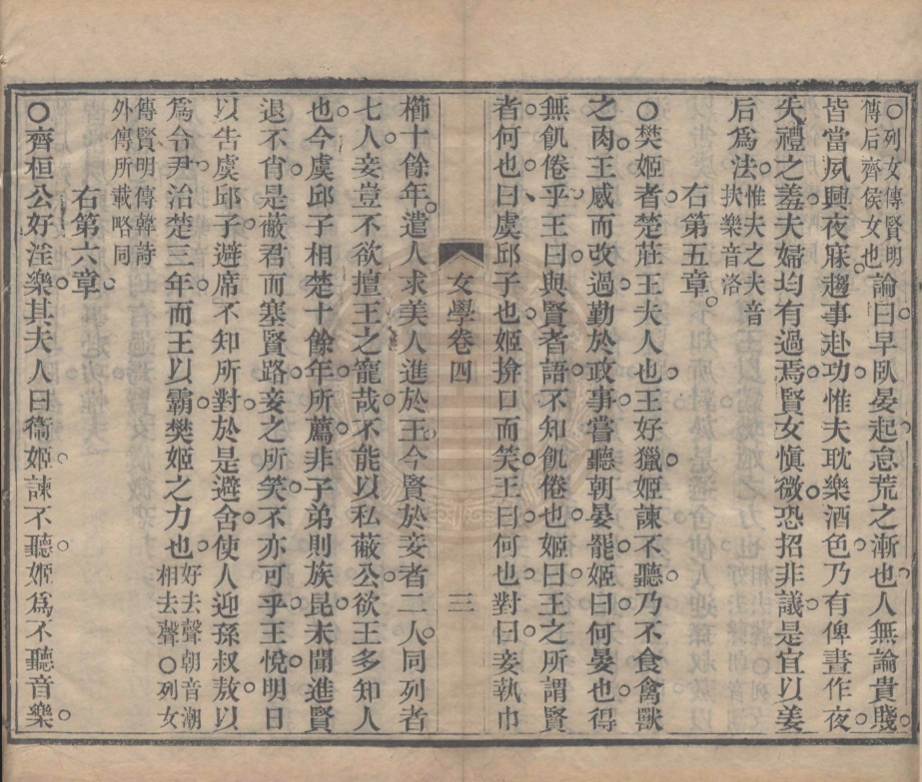 ○列女傳賢明
傳后齊侯女也論曰早臥晏起怠荒之漸也人無論貴賤
皆當夙興夜寐趨事赴功惟夫耽樂酒色乃有俾晝作夜
失禮之羞夫婦均有過焉賢女慎微恐招非議是宜以姜
后爲法惟夫之夫音
扶樂音洛
右第五章
○樊姬者楚莊王夫人也王好獵姬諫不聽乃不食禽獸
之肉王感而改過勤於政事嘗聽朝晏罷姬曰何晏也得
無飢倦乎王曰與賢者語不知飢倦也姬曰王之所謂賢
者何也曰虞邱子也姬揜口而笑王曰何也對曰妾執巾
女學卷四
三
櫛十餘年遣人求美人進於王今賢於妾者二人同列者
七人妾豈不欲擅王之寵哉不能以私蔽公欲王多知人
也今虞邱子相楚十餘年所薦非子弟則族昆未聞進賢
退不肖是蔽君而塞賢路妾之所笑不亦可乎王悅明日
以告虞邱子避席不知所對於是避舍使人迎孫叔敖以
爲令尹治楚三年而王以霸樊姬之力也好去聲朝音潮
相去聲○列女
傳賢明傳韓詩
外傳所載略同
右第六章
○齊桓公好淫樂其夫人曰衞姬諫不聽姬爲不聽音樂